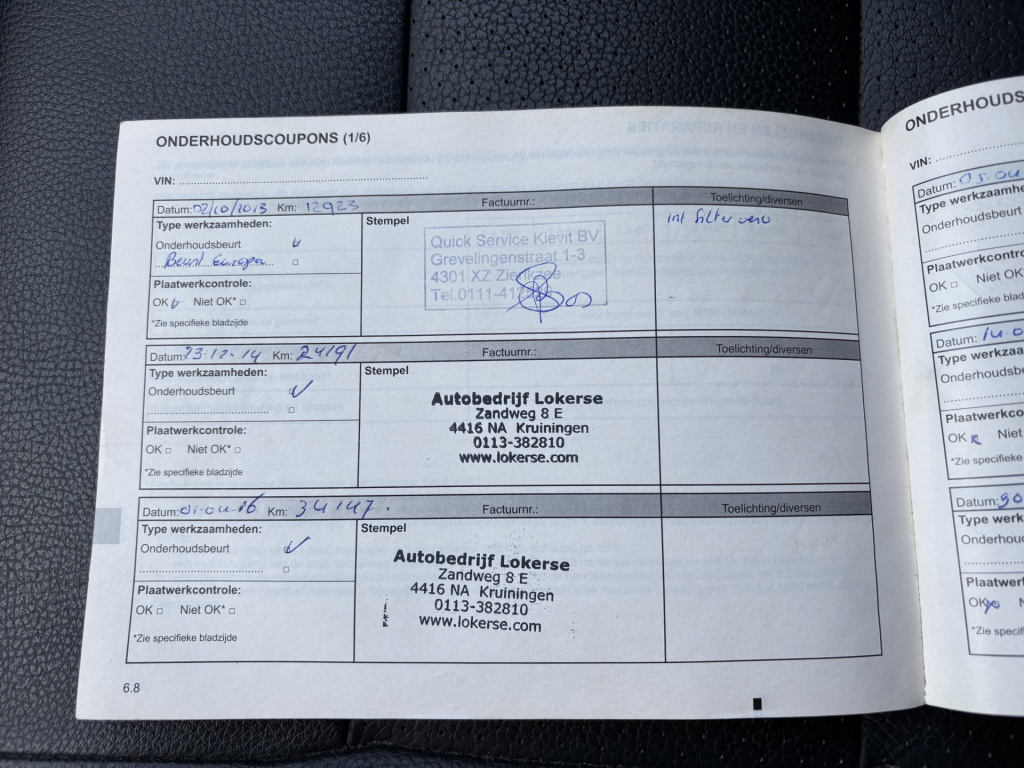 ONDERHOUDSCOUPONS (1/6)
VIN:
Datum: 02/10/2013 Km: 12923 Factuurnr.: Toelichting/diversen
Type werkzaamheden: Stempel int filter verv
Onderhoudsbeurt
Beurt Europa
Plaatwerkcontrole:
OK Niet OK*
*Zie specifieke bladzijde
Quick Service Kievit BV
Grevelingenstraat 1-3
4301 XZ Zierikzee
Tel.0111-41
Datum: 23-12-14 Km: 24191 Factuurnr.: Toelichting/diversen
Type werkzaamheden: Stempel
Onderhoudsbeurt
Plaatwerkcontrole:
OK Niet OK*
*Zie specifieke bladzijde
Autobedrijf Lokerse
Zandweg 8 E
4416 NA Kruiningen
0113-382810
www.lokerse.com
Datum: 01-04-16 Km: 34147. Factuurnr.: Toelichting/diversen
Type werkzaamheden: Stempel
Onderhoudsbeurt
Plaatwerkcontrole:
OK Niet OK*
*Zie specifieke bladzijde
Autobedrijf Lokerse
Zandweg 8 E
4416 NA Kruiningen
0113-382810
www.lokerse.com
6.8
ONDERHOUDS
VIN:
Datum: 05-04
Type werkzaamheden
Onderhoudsbeurt
Plaatwerkcontrole
OK Niet OK
*Zie specifieke b
Datum: 14-0
Type werkzaa
Onderhoudsbe
Plaatwerkco
OK Niet
*Zie specifi
Datum: 30
Type werkz
Onderhoud
Plaatwerk
OK
*Zie speci